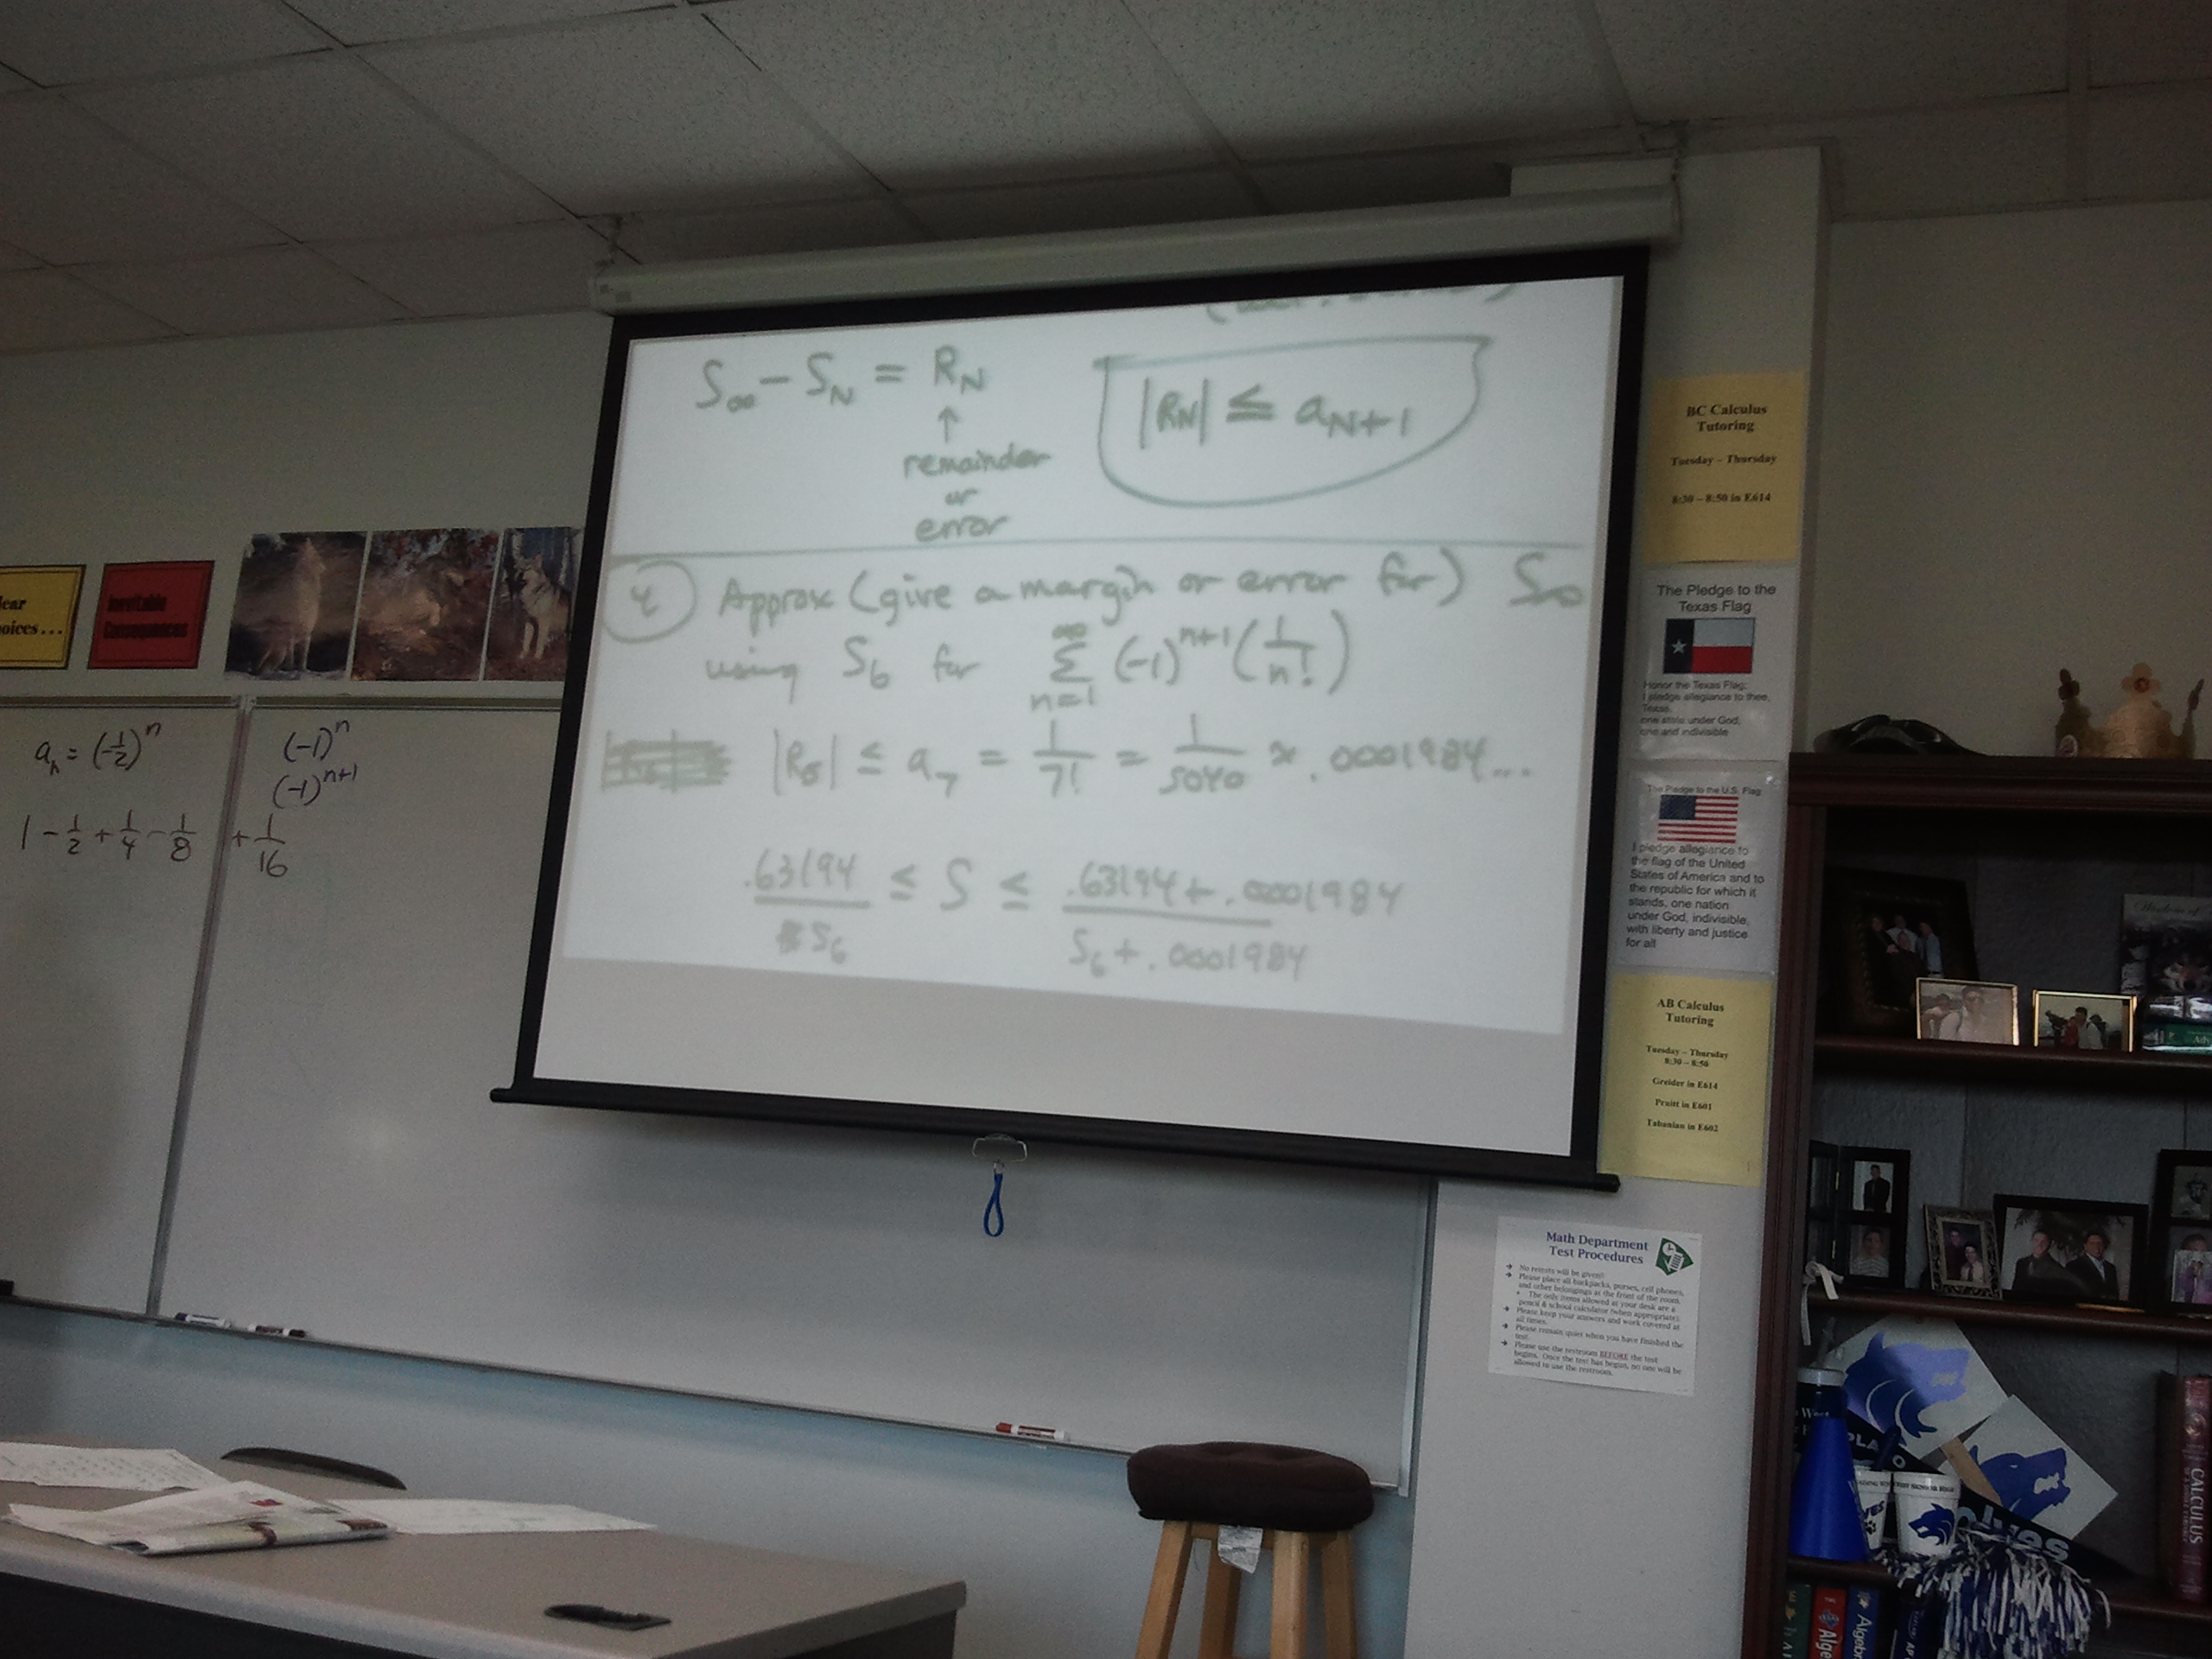 S∞ - S_N = R_N
↑
remainder
or
error
|R_N| ≤ a_{N+1}
4 Approx (give a margin or error for) S∞
using S_6 for ∞ Σ n=1 (-1)^{n+1} (1/n!)
|R_6| ≤ a_7 = 1/7! = 1/5040 ≈ .0001984...
.63194 ≤ S ≤ .63194 + .0001984
S_6 S_6 + .0001984
a_n = (-1/2)^n
(-1)^n
(-1)^{n+1}
1 - 1/2 + 1/4 - 1/8 + 1/16
lear
oices...
Inevitable
Consequences
BC Calculus
Tutoring
Tuesday - Thursday
8:30 - 8:50 in E614
The Pledge to the
Texas Flag
Honor the Texas Flag;
I pledge allegiance to thee,
Texas,
one state under God,
one and indivisible
The Pledge to the U.S. Flag
I pledge allegiance to
the flag of the United
States of America and to
the republic for which it
stands, one nation
under God, indivisible,
with liberty and justice
for all
AB Calculus
Tutoring
Tuesday - Thursday
8:30 - 8:50
Greider in E614
Pruitt in E601
Tabanian in E602
Math Department
Test Procedures
No retests will be given!
Please place all backpacks, purses, cell phones,
and other belongings at the front of the room.
The only items allowed at your desk are a
pencil & school calculator (when appropriate).
Please keep your answers and work covered at
all times.
Please remain quiet when you have finished the
test.
Please use the restroom BEFORE the test
begins. Once the test has begun, no one will be
allowed to use the restroom.
West
PLANO
WOLVES
CALCULUS
Alge
Algebra